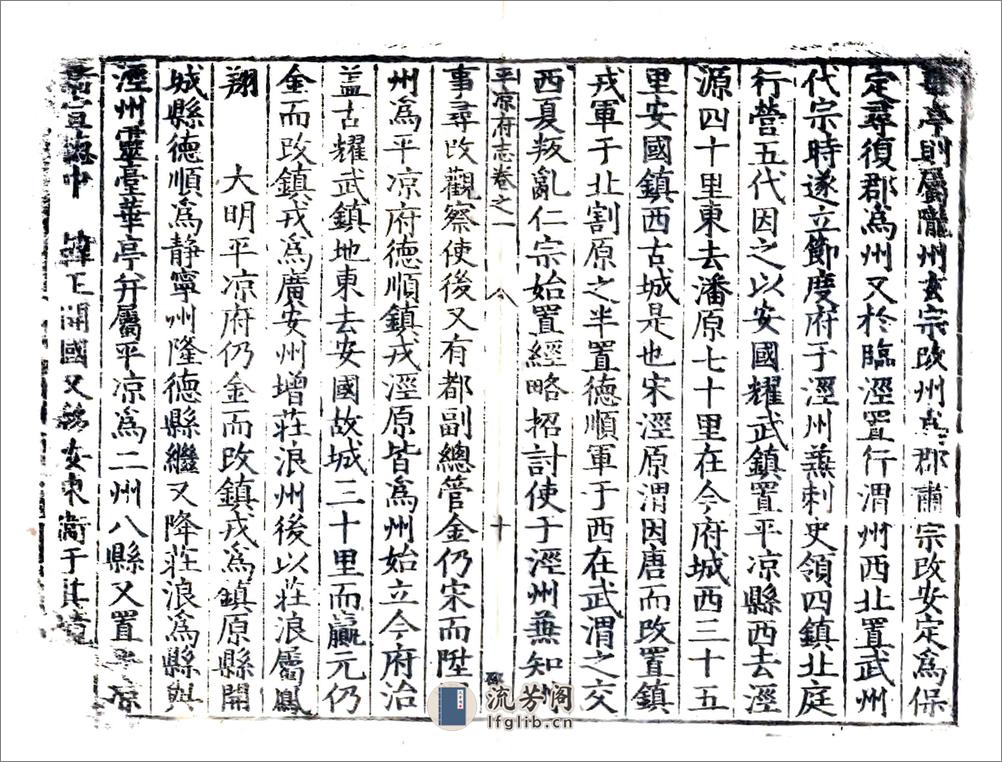 華亭則屬隴州玄宗改州為郡肅宗改安定為保
定尋復郡為州又於臨涇置行渭州西北置武州
代宗時遂立節度府于涇州蒹刺史領四鎮北庭
行營五代因之以安國耀武鎮置平凉縣西去涇
源四十里東去潘原七十里在今府城西三十五
里安國鎮西古城是也宋涇原渭因唐而改置鎮
戎軍于北割原之半置德順軍于西在武渭之交
西夏叛亂仁宗始置經略招討使于涇州蒹知州
平凉府志卷之一
十
事尋改觀察使後又有都副總管金仍宋而陞
州爲平凉府德順鎮戎涇原皆爲州始立今府治
盖古耀武鎮地東去安國故城三十里而贏元仍
金而改鎮戎爲廣安州增莊浪州後以莊浪屬鳳
翔 大明平凉府仍金而改鎮戎爲鎮原縣開
城縣德順爲静寧州隆德縣繼又降莊浪爲縣與
涇州靈臺華亭弁屬平凉爲二州八縣又置
宣德中 韓王開國又移安東衞于其境
流芳阁
lfglib.cn